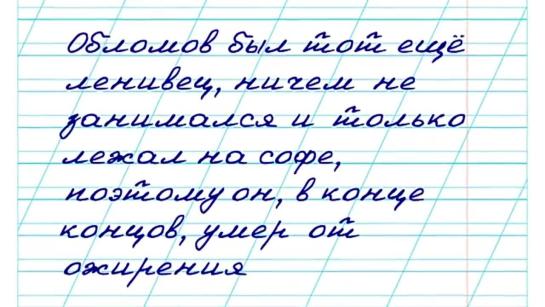 Обломов был тот ещё
ленивец, ничем не
занимался и только
лежал на софе,
поэтому он, в конце
концов, умер от
ожирения